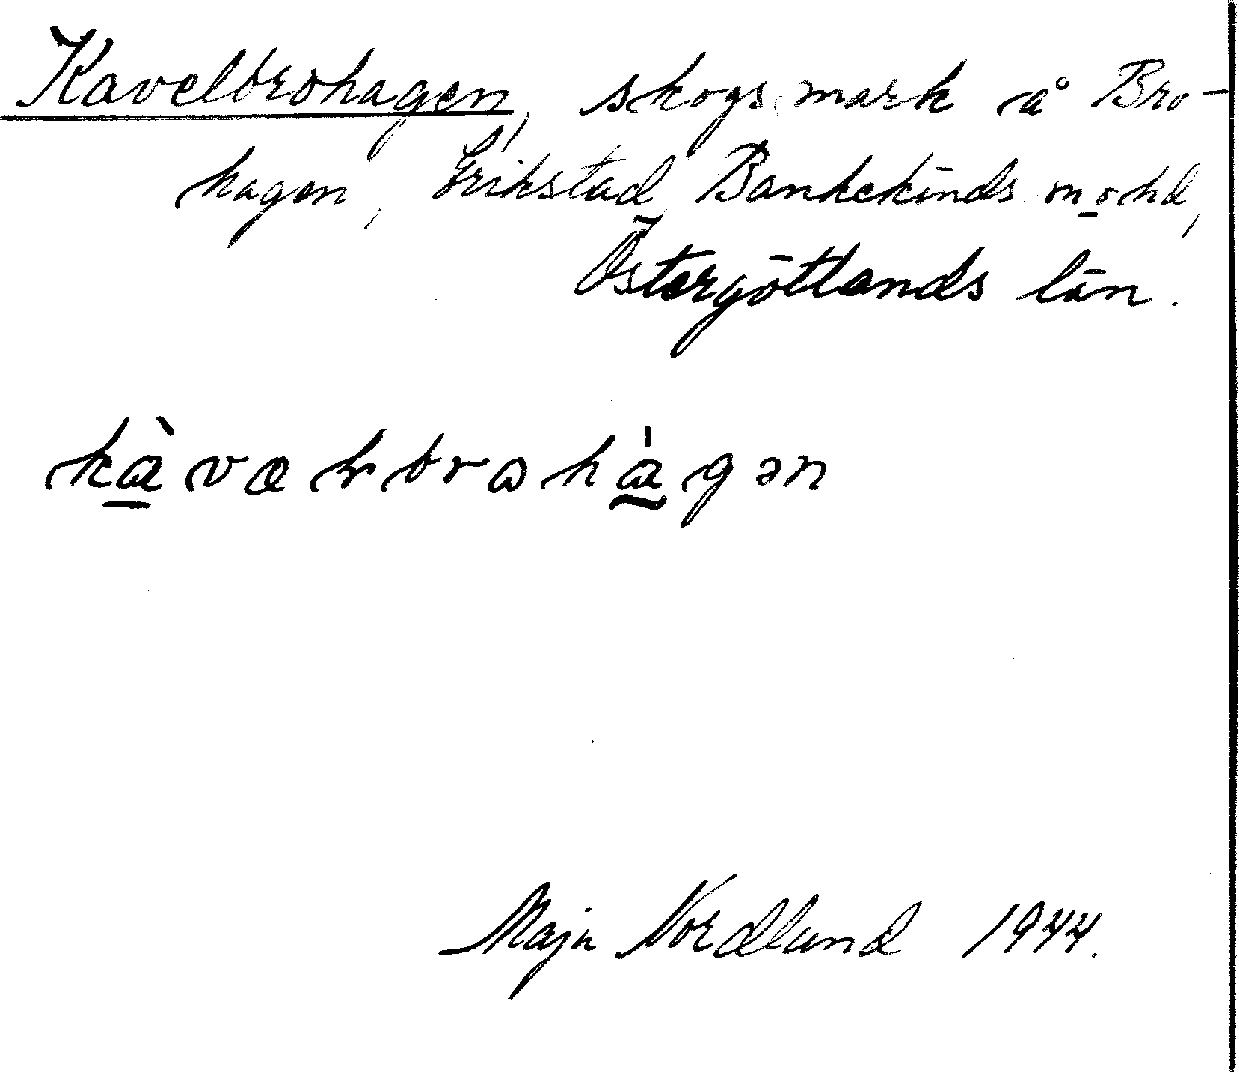 Kavelbrohagen, skogsmark å Bro-
hagen, Grikstad, Bankekinds sn o hd,
Östergötlands län.
kàvæłbrɷhàgən
Maja Nordlund 1944.